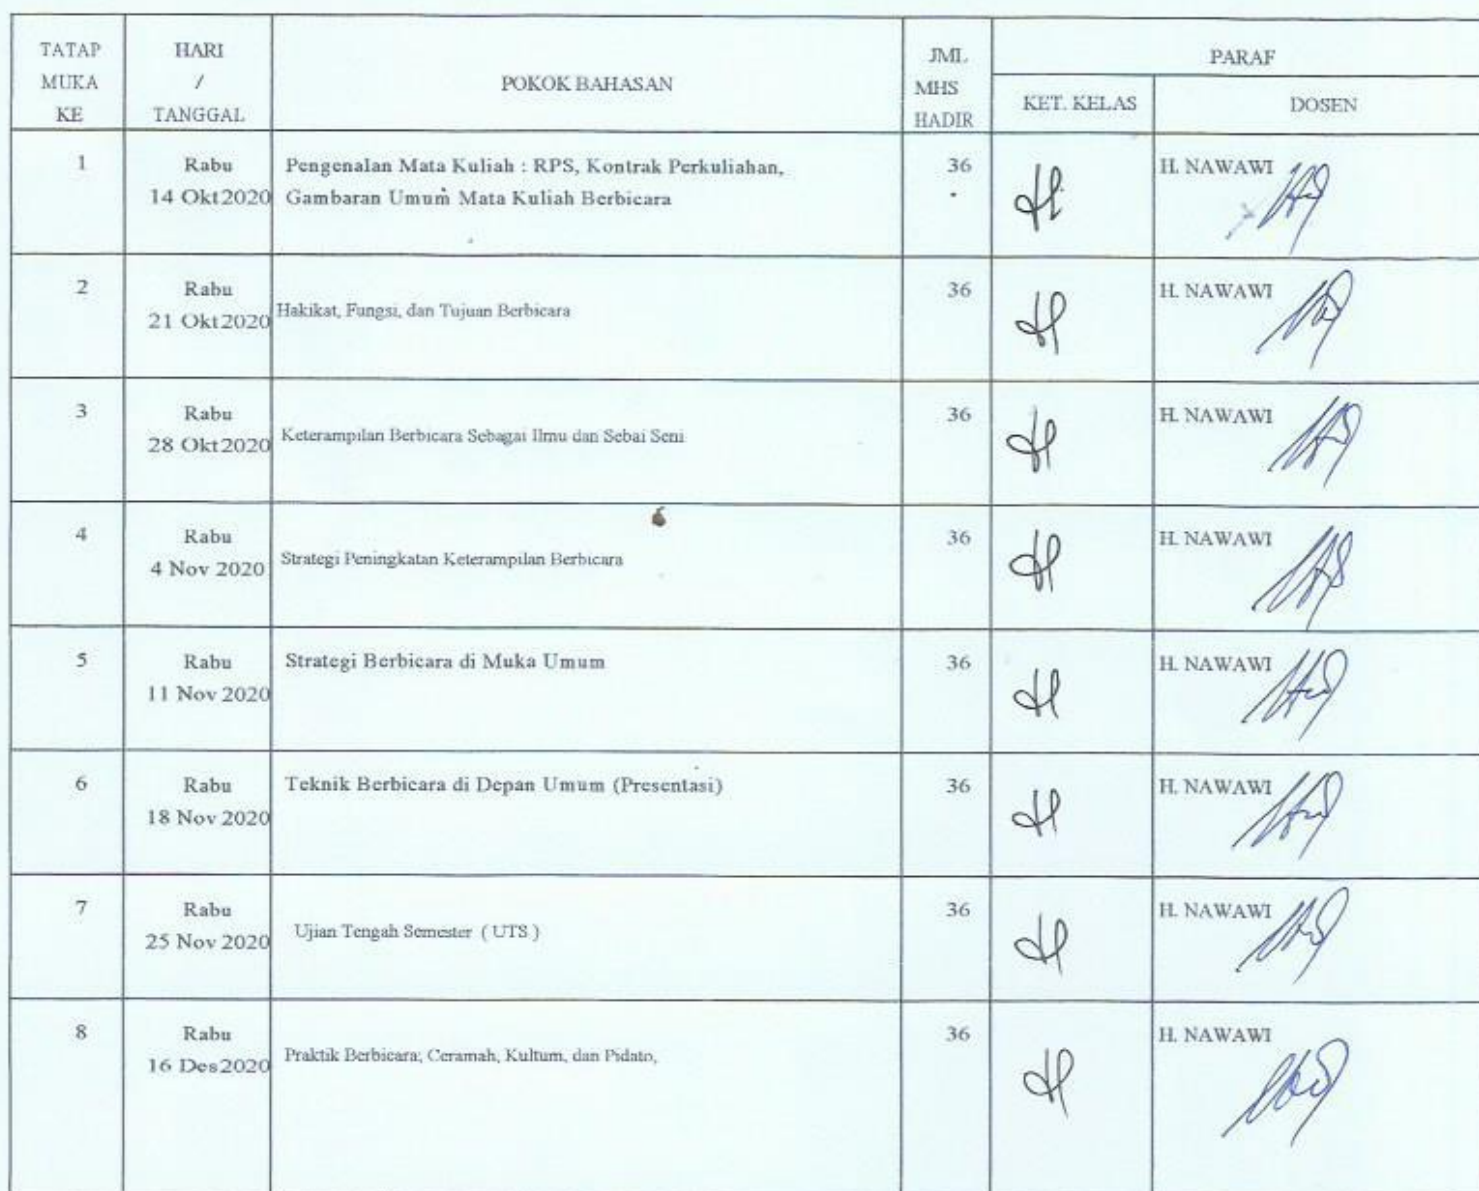 TATAP MUKA KE
HARI / TANGGAL
POKOK BAHASAN
JML MHS HADIR
PARAF
KET. KELAS
DOSEN
1
Rabu
14 Okt2020
Pengenalan Mata Kuliah : RPS, Kontrak Perkuliahan,
Gambaran Umum Mata Kuliah Berbicara
36
H. NAWAWI
2
Rabu
21 Okt2020
Hakikat, Fungsi, dan Tujuan Berbicara
36
H. NAWAWI
3
Rabu
28 Okt2020
Keterampilan Berbicara Sebagai Ilmu dan Sebai Seni
36
H. NAWAWI
4
Rabu
4 Nov 2020
Strategi Peningkatan Keterampilan Berbicara
36
H. NAWAWI
5
Rabu
11 Nov 2020
Strategi Berbicara di Muka Umum
36
H. NAWAWI
6
Rabu
18 Nov 2020
Teknik Berbicara di Depan Umum (Presentasi)
36
H. NAWAWI
7
Rabu
25 Nov 2020
Ujian Tengah Semester ( UTS )
36
H. NAWAWI
8
Rabu
16 Des2020
Praktik Berbicara; Ceramah, Kultum, dan Pidato,
36
H. NAWAWI